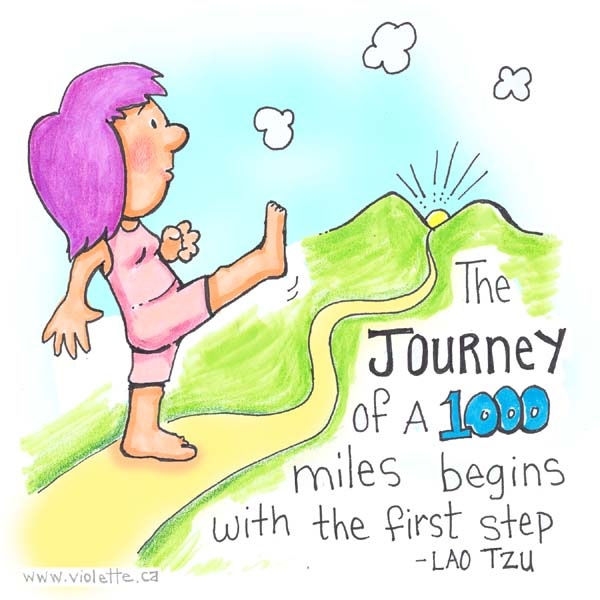 The
JOURNEY
of A 1000
miles begins
with the first step
-LAO TZU
www.violette.ca